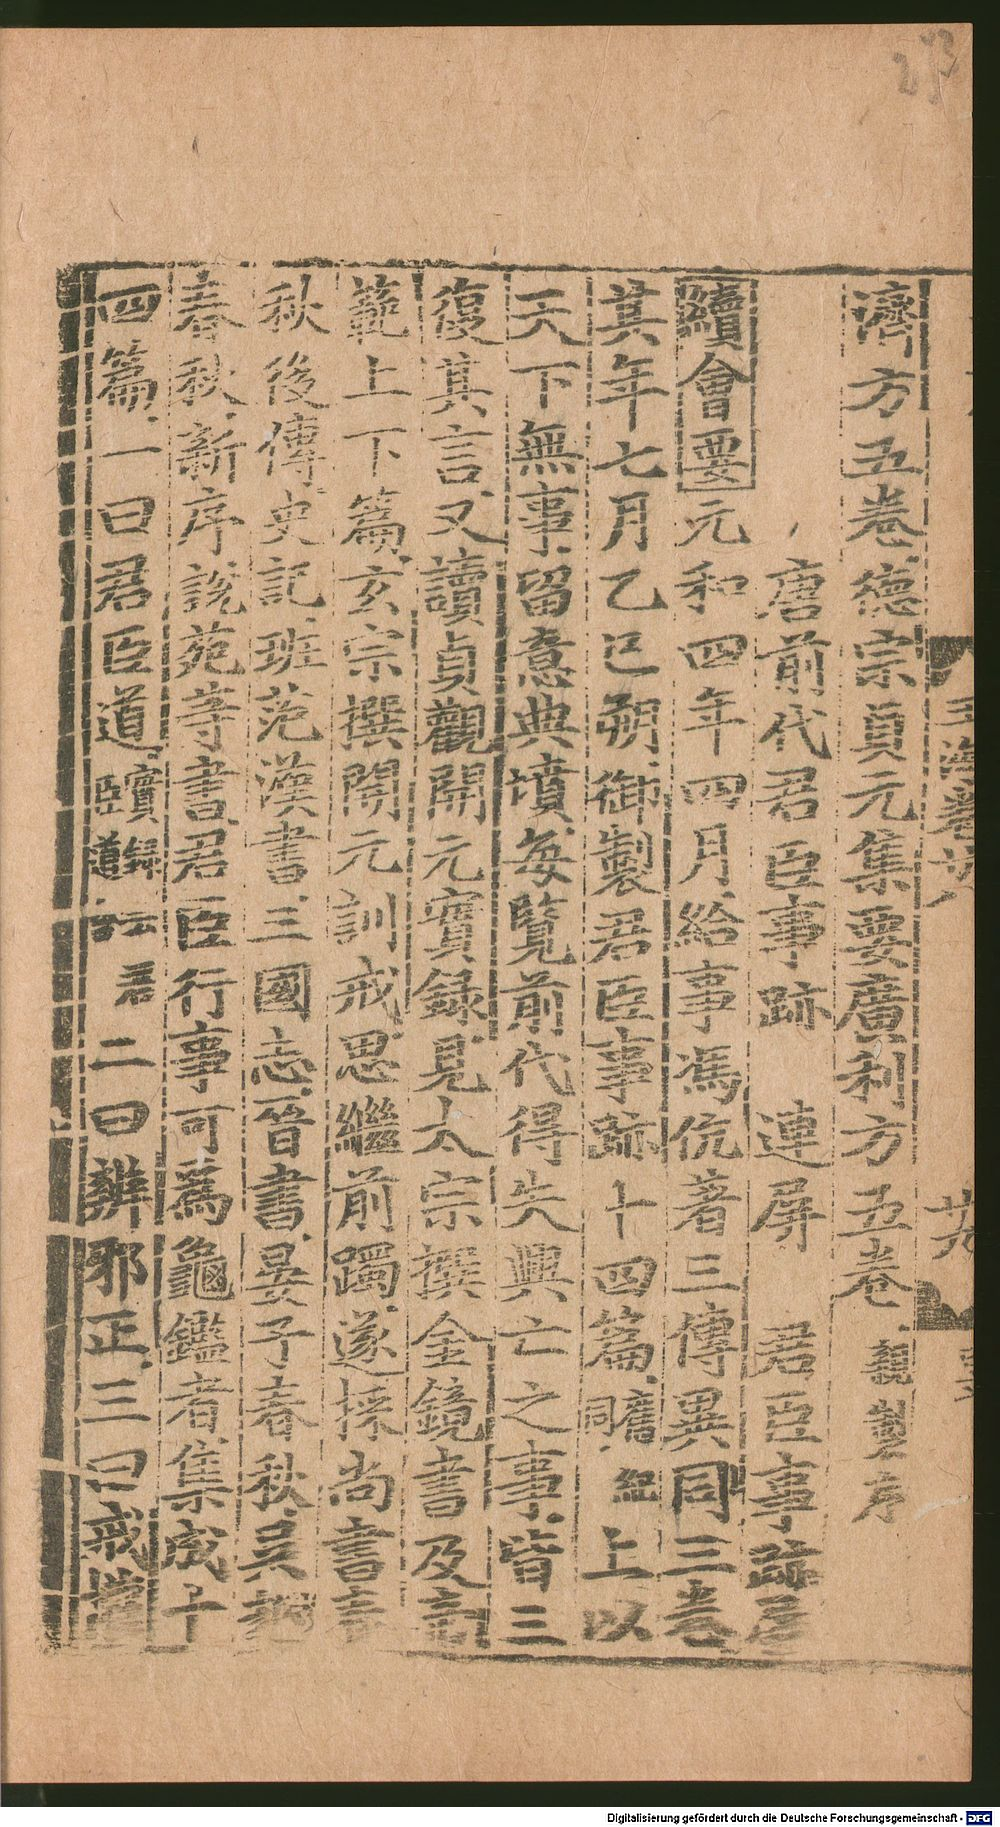 濟方五卷德宗貞元集要廣利方五卷親製序
唐前代君臣事跡　連屏　君臣事跡
續會要元和四年四月給事馮伉著三傳異同三卷
其年七月乙巳朔御製君臣事跡十四篇舊紀同上以
天下無事留意典墳每覽前代得失興亡之事皆三
復其言又讀貞觀開元實錄見太宗撰金鏡書及帝
範上下篇玄宗撰開元訓戒思繼前躅遂採尚書春
秋後傳史記班范漢書三國志晉書晏子春秋吳越
春秋新序說苑等書君臣行事可為龜鑑者集成十
四篇一曰君臣道實錄云君臣道合二曰辨邪正三曰戒權
玉海卷廿八
廿六
Digitalisierung gefördert durch die Deutsche Forschungsgemeinschaft - DFG